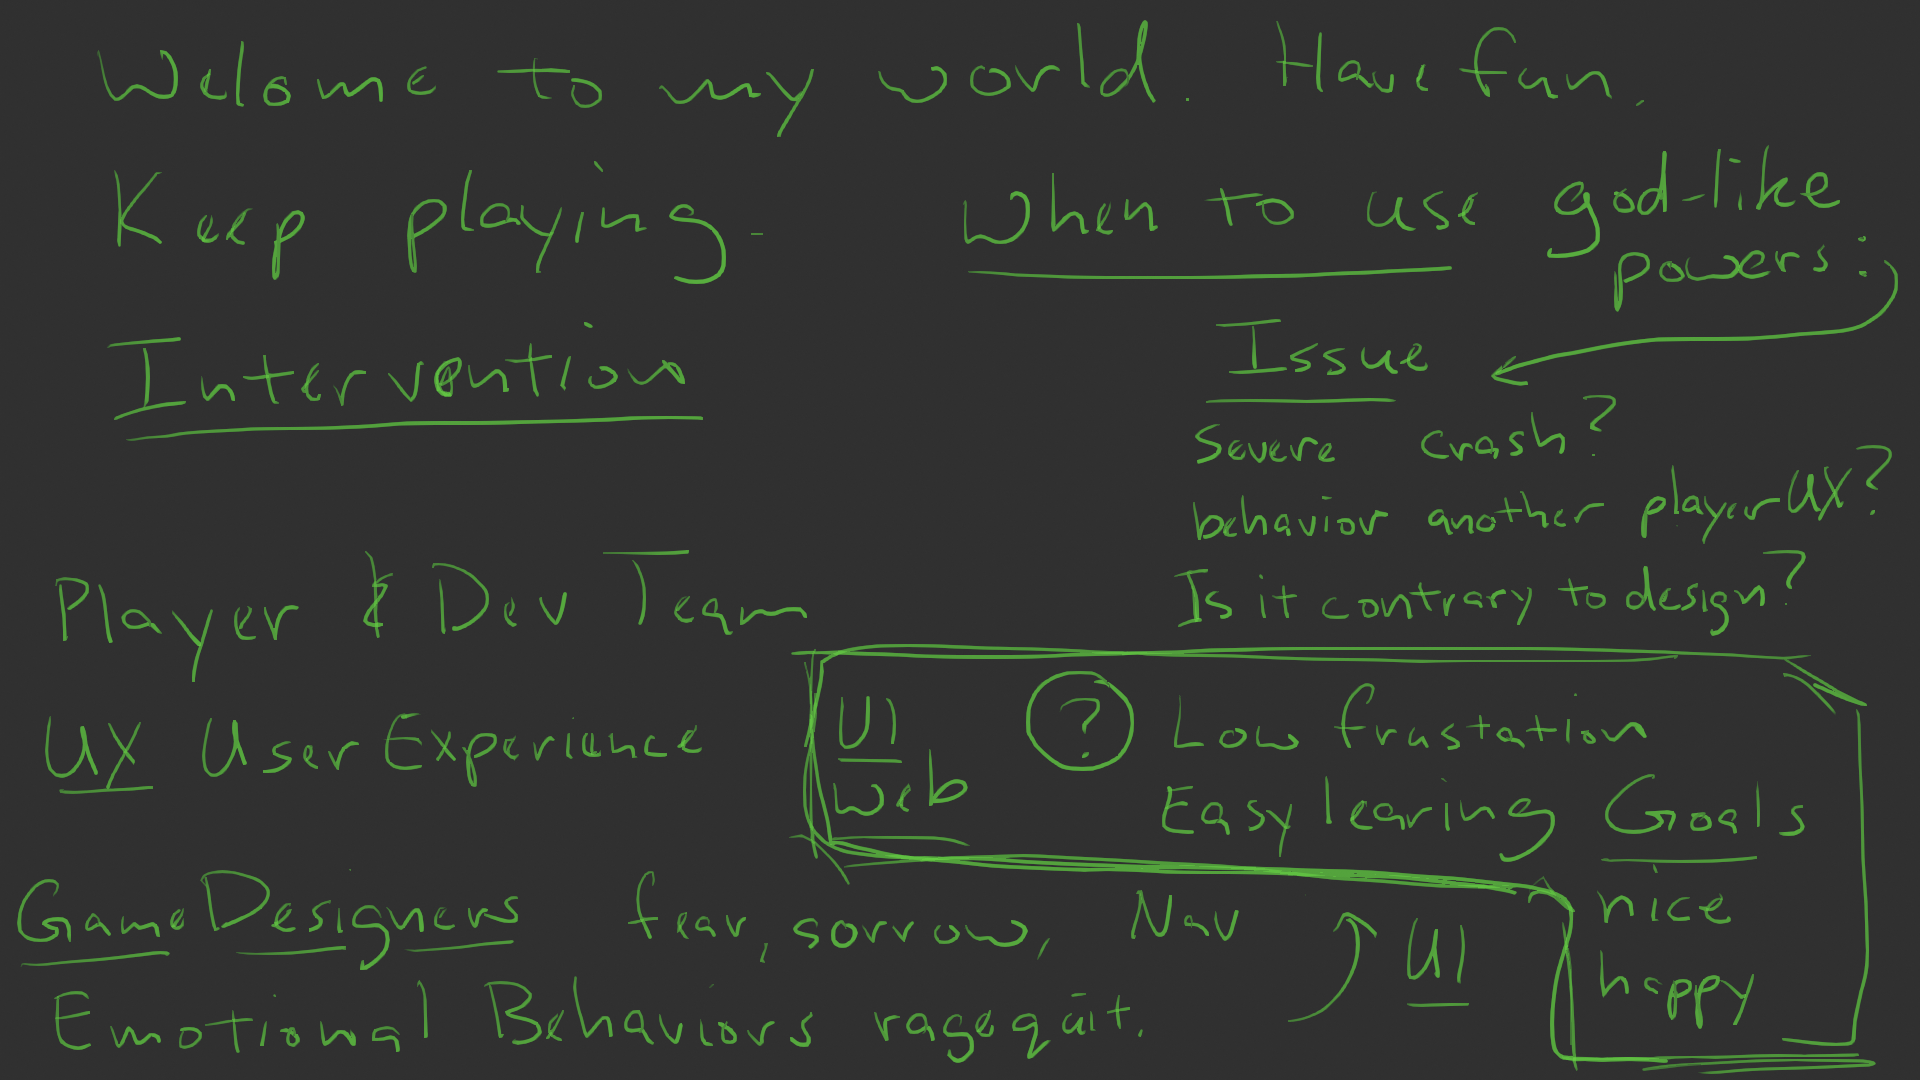 Welome to my world. Have fun.
Keep playing. When to use god-like
powers:
Intervention
Issue
Severe crash?
behavior another player UX?
Is it contrary to design?
Player & Dev Team
UX User Experiance
UI ? Low frustation
Web Easy learing Goals
nice
happy
Game Designers fear, sorrow, Nav UI
Emotional Behaviors ragequit.